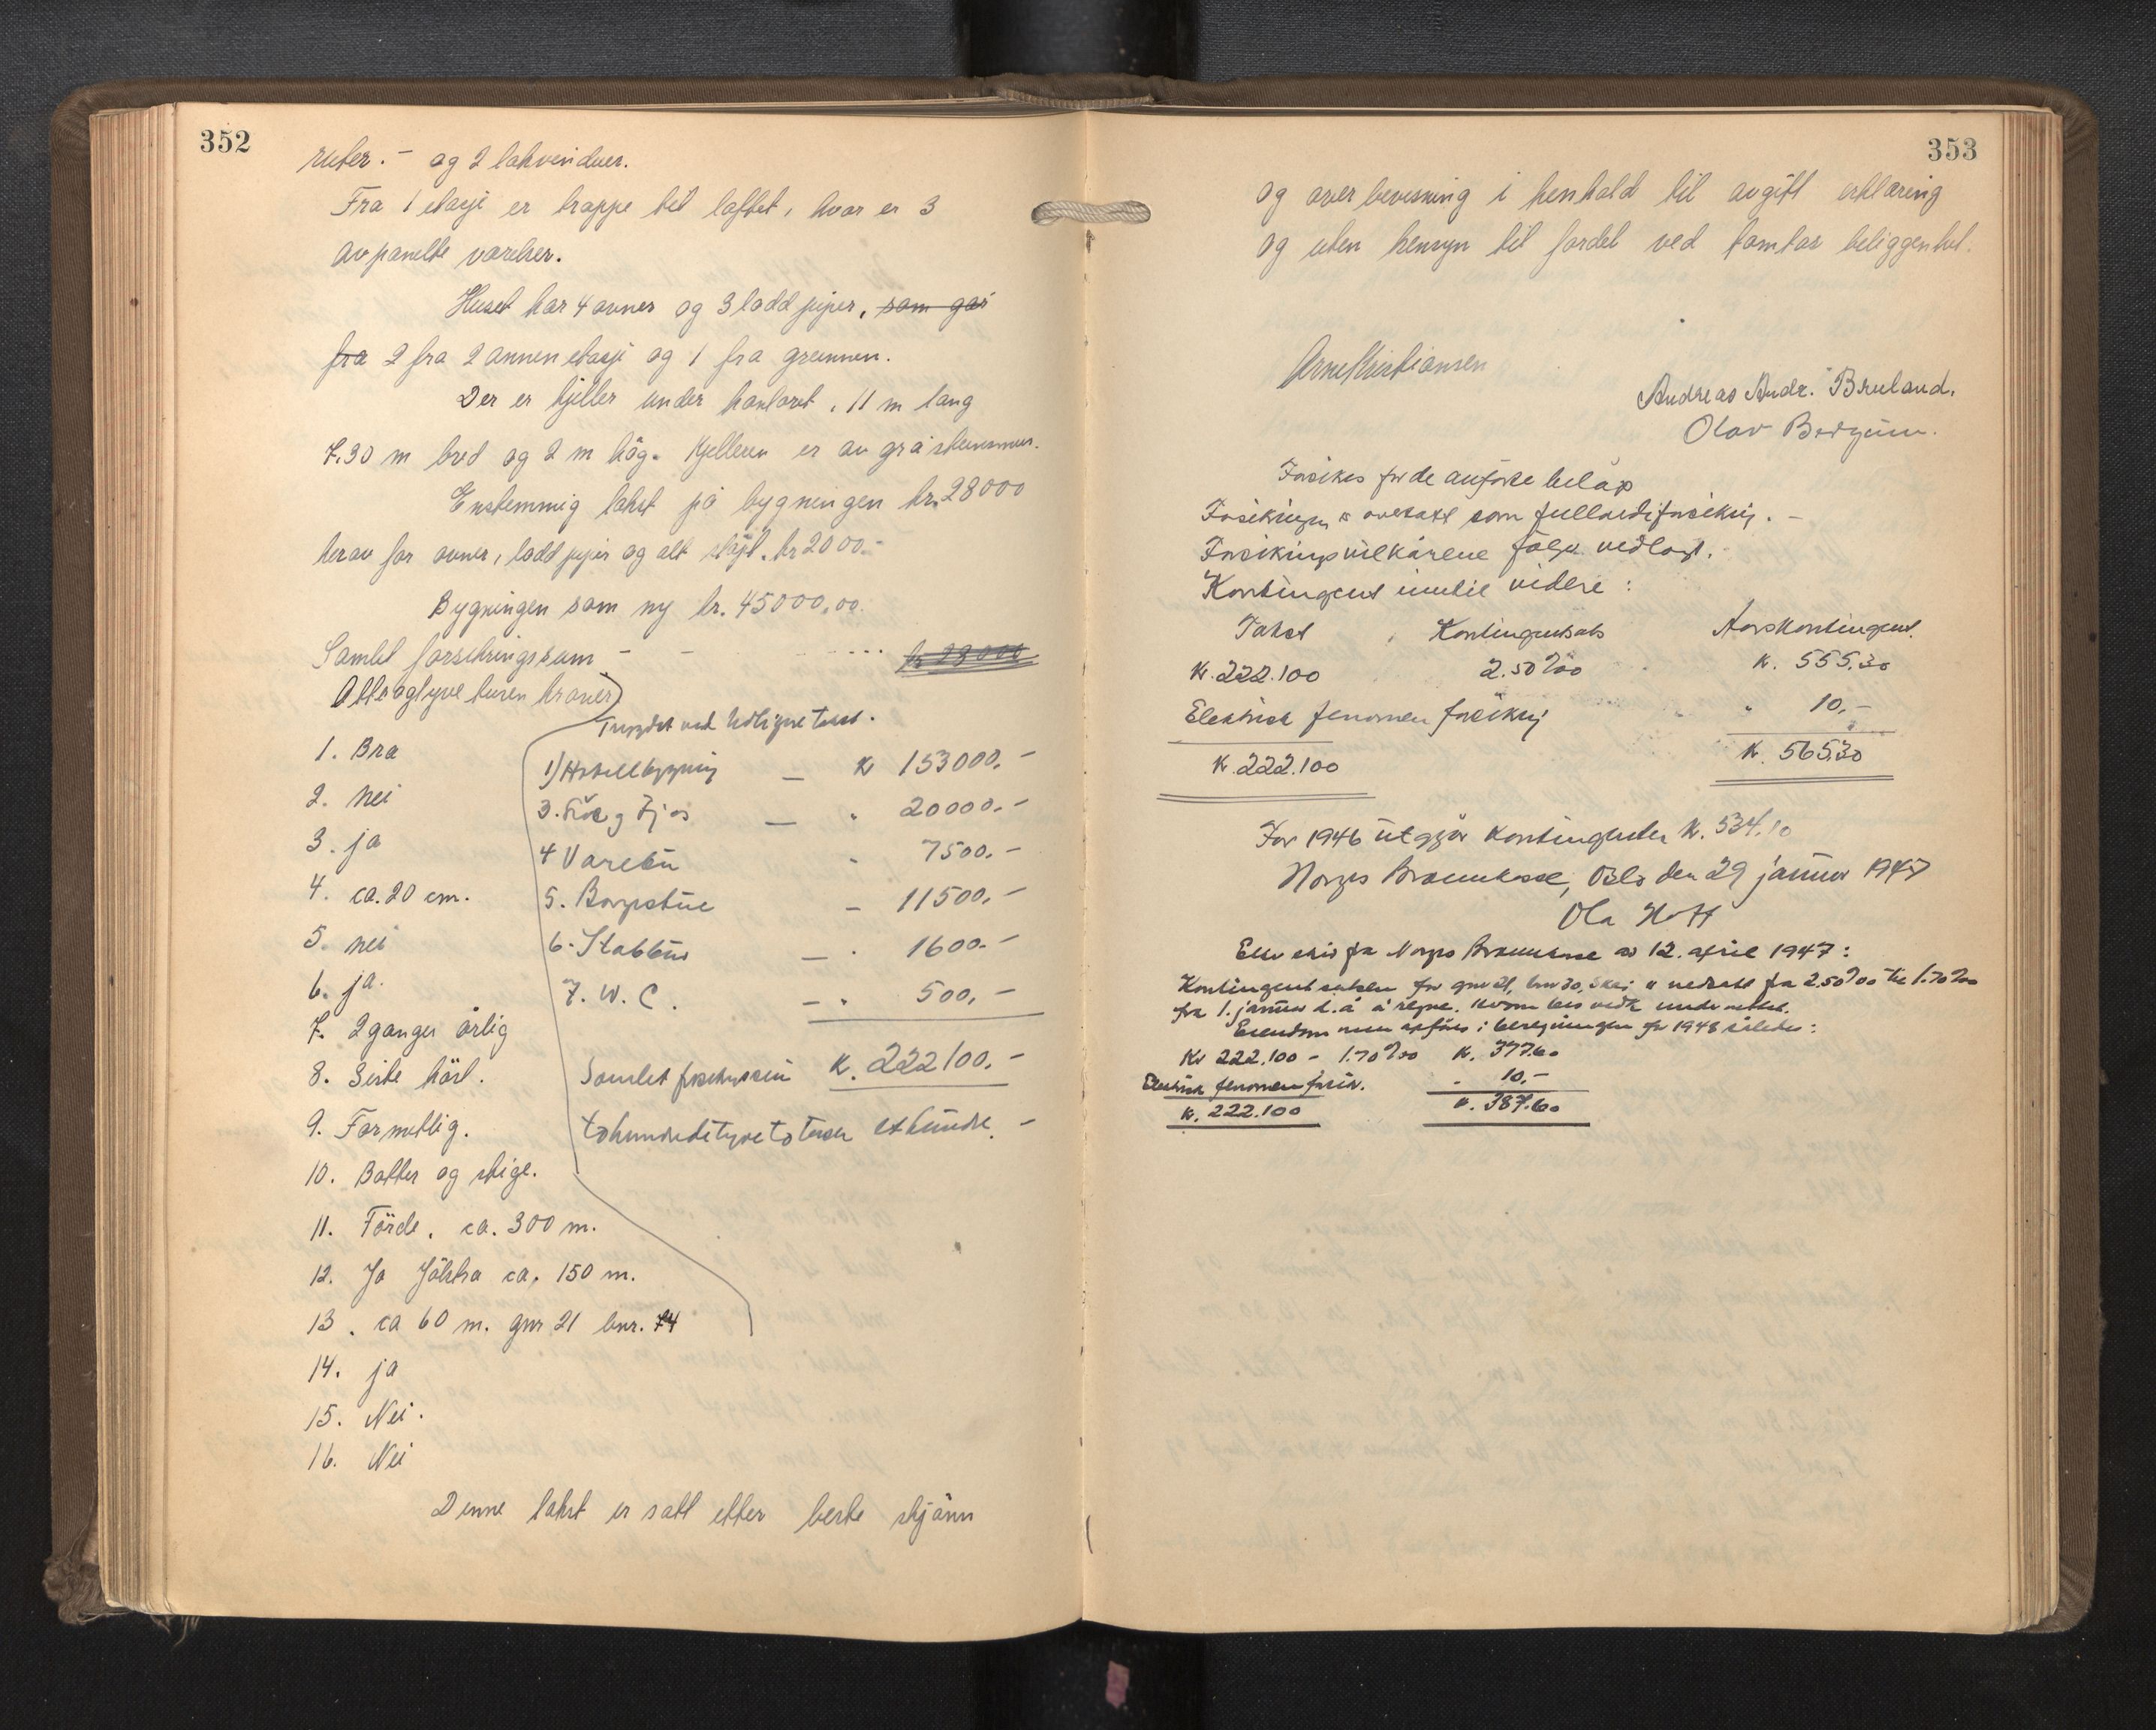 352
ruter. – og 2 takvinduer.
Fra 1 etasje er trappe til loftet, hvor er 3
avpanelte værelser.
Huset har 4 ovner og 3 lodd piper, som går
fra 2 fra 2 annen etasje og 1 fra grunnen.
Der er kjeller under kontoret, 11 m lang
7.30 m bred og 2 m høg. Kjelleren er av gråsteinsmur.
Enstemmig takst på bygningen kr. 28000
herav for ovner, lodd piper og alt sløyt. kr 2000.-
Bygningen som ny kr. 45000,00.
Samlet forsikringssum - - .... kr 28000
Åtteogtyve tusen kroner
1. Bra
2. Nei
3. ja
4. ca. 20 cm.
5. nei
6. ja.
7. 2 ganger årlig
8. Siste høst.
9. Farmetlig.
10. Bøtter og stige.
11. Förde. ca. 300 m.
12. Ja Jölstra ca. 150 m.
13. ca 60 m. gnr 21 bnr. 74
14. ja
15. Nei.
16. Nei
1) Hotellbygning – kr 153000.-
3. Fjös – " 20000.-
4 Varebu " 7500.-
5. Borgstue – 11500.-
6. Stabbur – " 1600.-
7. W. C. – " 500,-
Samlet kr. 222100.-
tohundredetyvetotusen ethundre. -
Denne takst er satt etter beste skjønn
353
og overbevisning i henhold til avgitt erklæring
og uten hensyn til fordel ved tomtas beliggenhet.
Arne Kristiansen
Andreas Andr. Bruland.
Olav Bergum.
Forsikres for de anførte beløp
Forsikringen er overtatt som fullverdiforsikring. -
Forsikringsvilkårene følger vedlagt.
Kontingent inntil videre:
Takst Kontingentsats Årskontingent.
Kr. 222.100 2.50 ‰ Kr. 555.30
Elektrisk fenomen forsikring " 10,-
Kr. 222.100 Kr. 565.30
For 1946 utgjør kontingenten kr. 534.10
Norges Brannkasse, Oslo den 29 januar 1947
Ola Hoff
Etter skriv fra Norges Brannkasse av 12. april 1947:
Kontingentsatsen for gnr 21, bnr 30, er nedsatt fra 2.50 ‰ til 1.70 ‰
fra 1. januar d.å. å regne.
Eiendommen opføres i beregningen for 1948 således:
Kr 222.100 - 1.70 ‰ Kr. 377.60
Elektrisk fenomen forsik. " 10.-
Kr. 222.100 Kr. 387.60